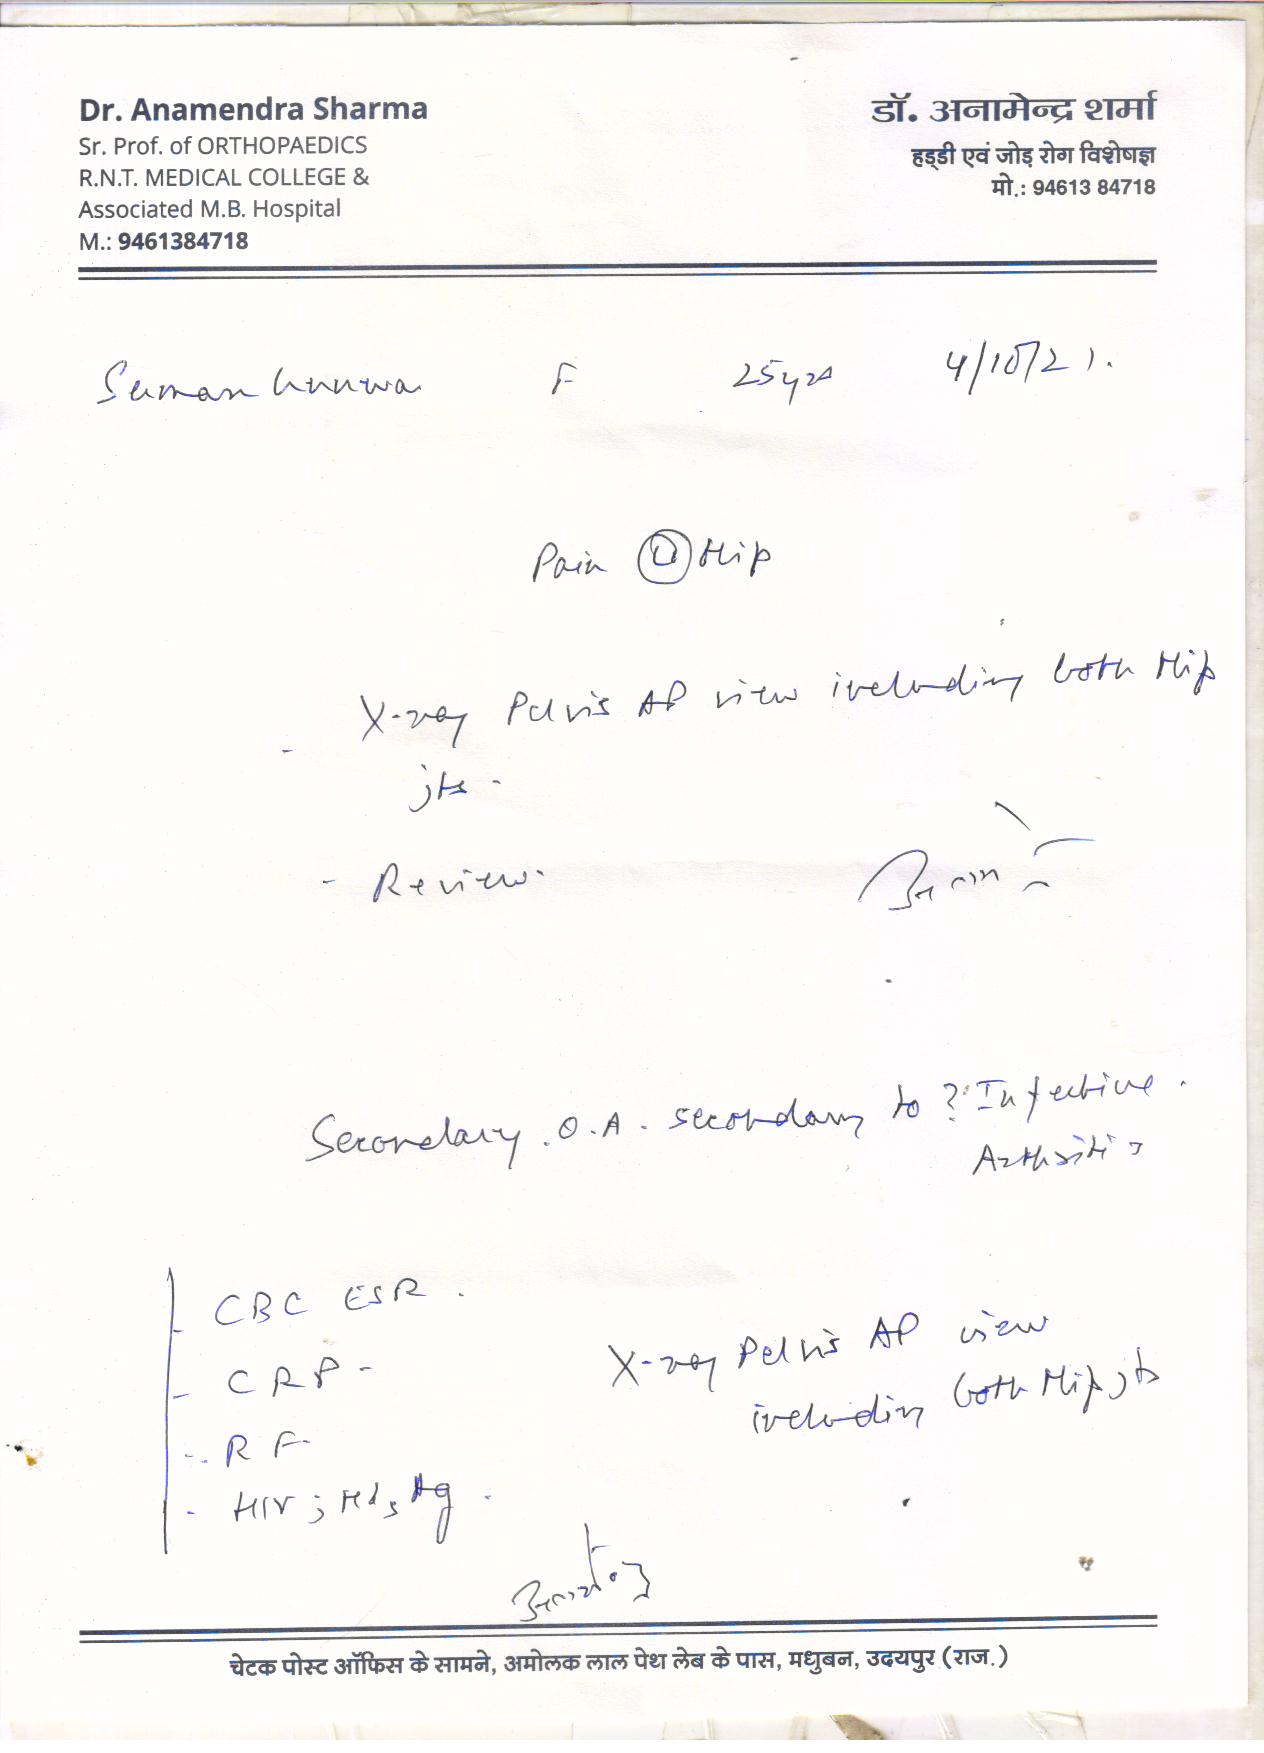 Dr. Anamendra Sharma
Sr. Prof. of ORTHOPAEDICS
R.N.T. MEDICAL COLLEGE &
Associated M.B. Hospital
M.: 9461384718
डॉ. अनामेन्द्र शर्मा
हड्डी एवं जोड़ रोग विशेषज्ञ
मो.: 94613 84718
Suman F 25yrs 4/10/21.
Pain Hip
- X-ray Pelvis AP view including both Hip
jts -
- Review.
Secondary. O.A. secondary to ? Infective.
Arthritis
- CBC ESR.
- CRP -
- RF
- HIV; HbsAg.
X-ray Pelvis AP view
including both Hip jts
चेटक पोस्ट ऑफिस के सामने, अमोलक लाल पेथ लेब के पास, मधुबन, उदयपुर (राज.)